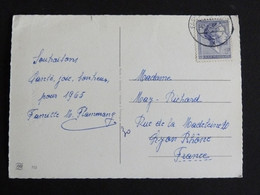 Souhaitons
Santé, joie, bonheur
pour 1965
Famille
Madame
May Richard
Rue de la Madeleine
Lyon Rhône
France